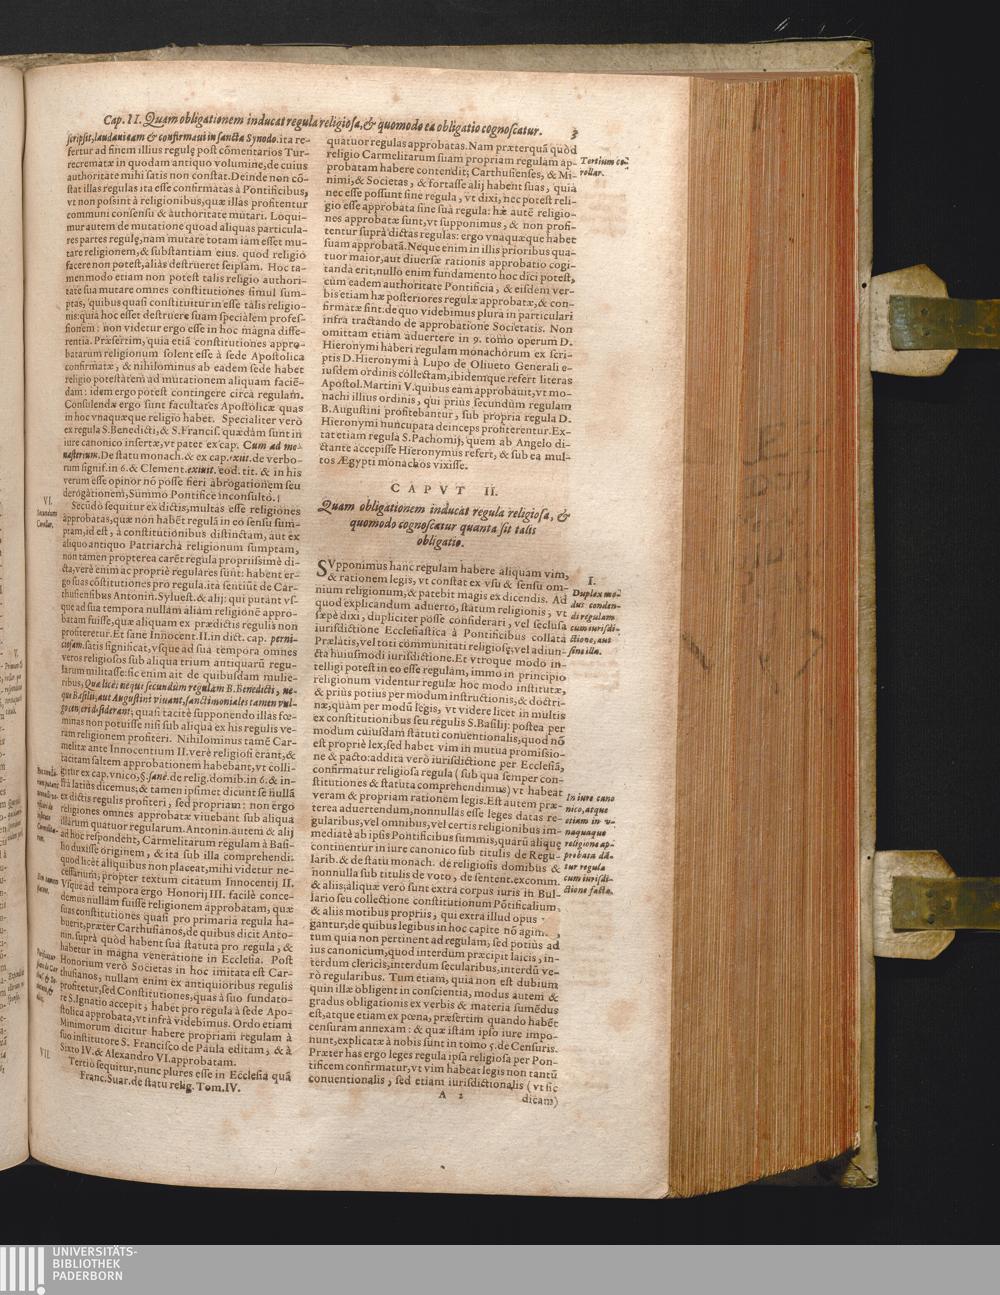 Cap. II. Quam obligationem inducat regula religiosa, & quomodo ea obligatio cognoscatur. 3
scripsit, laudaui eam & confirmaui in sancta Synodo. ita re-
fertur ad finem illius regulę post cōmentarios Tur-
recrematæ in quodam antiquo volumine, de cuius
authoritate mihi satis non constat. Deinde non cō-
stat illas regulas ita esse confirmatas à Pontificibus,
vt non possint à religionibus, quæ illas profitentur
communi consensu & authoritate mutari. Loqui-
mur autem de mutatione quoad aliquas particula-
res partes regulę, nam mutare totam iam esset mu-
tare religionem, & substantiam eius. quod religio
facere non potest, aliàs destrueret seipsam. Hoc ta-
men modo etiam non potest talis religio authori-
tate sua mutare omnes constitutiones simul sum-
ptas, quibus quasi constituitur in esse talis religio-
nis: quia hoc esset destruere suam specialem profes-
sionem: non videtur ergo esse in hoc magna diffe-
rentia. Præsertim, quia etiā constitutiones appro-
batarum religionum solent esse à sede Apostolica
confirmatæ, & nihilominus ab eadem sede habet
religio potestatem ad mutationem aliquam faciē-
dam: idem ergo potest contingere circa regulam.
Consulendæ ergo sunt facultates Apostolicæ quas
in hoc vnaquæque religio habet. Specialiter verò
ex regula S. Benedicti, & S. Francis. quædam sunt in
iure canonico insertæ, vt patet ex cap. Cum ad mo-
nasterium. De statu monach. & ex cap. exiit. de verbo-
rum signif. in 6. & Clement. exiuit. eod. tit. & in his
verum esse opinor nō posse fieri abrogationem seu
derogationem, Summo Pontifice inconsulto.
VI.
Secundum
Corollar.
Secūdò sequitur ex dictis, multas esse religiones
approbatas, quæ non habēt regulā in eo sensu sum-
ptam, id est, à constitutionibus distinctam, aut ex
aliquo antiquo Patriarcha religionum sumptam,
non tamen propterea carēt regula propriissimè di-
cta, verè enim ac propriè regulares sunt: habent er-
go suas cōstitutiones pro regula. ita sentiūt de Car-
thusiensibus Antonin. Syluest. & alij: qui putant vs-
que ad sua tempora nullam aliam religionē appro-
batam fuisse, quæ aliquam ex prædictis regulis non
profiteretur. Et sane Innocent. II. in dict. cap. perni-
ciosam. satis significat, vsque ad sua tempora omnes
veros religiosos sub aliqua trium antiquarū regu-
larum militasse: sic enim ait de quibusdam mulie-
ribus, Quæ licet neque secundùm regulam B. Benedicti, ne-
que Basilij, aut Augustini viuant, sanctimoniales tamen vul-
go censeri desiderant; quasi tacitè supponendo illas fœ-
minas non potuisse nisi sub aliqua ex his regulis ve-
ram religionem profiteri. Nihilominus tamē Car-
melitæ ante Innocentium II. verè religiosi erant, &
tacitam saltem approbationem habebant, vt colli-
gitur ex cap. vnico, §. sanè. de relig. domib. in 6. & in-
frà latiùs dicemus; & tamen ipsimet dicunt se nullā
ex dictis regulis profiteri, sed propriam: non ergo
religiones omnes approbatæ viuebant sub aliqua
illarum quatuor regularum. Antonin. autem & alij
ad hoc respondent, Carmelitarum regulam à Basi-
lio duxisse originem, & ita sub illa comprehendi.
quod licèt aliquibus non placeat, mihi videtur ne-
cessarium, propter textum citatum Innocentij II.
Vsque ad tempora ergo Honorij III. facilè conce-
demus nullam fuisse religionem approbatam, quæ
suas constitutiones quasi pro primaria regula ha-
buerit, præter Carthusianos, de quibus dicit Anto-
nin. suprà quòd habent sua statuta pro regula, &
habetur in magna veneratione in Ecclesia. Post
Honorium verò Societas in hoc imitata est Car-
thusianos, nullam enim ex antiquioribus regulis
profitetur, sed Constitutiones, quas à suo fundato-
re S. Ignatio accepit, habet pro regula à sede Apo-
stolica approbata, vt infrà videbimus. Ordo etiam
Minimorum dicitur habere propriam regulam à
suo institutore S. Francisco de Paula editam, & à
Sixto IV. & Alexandro VI. approbatam.
VII.
Tertiò sequitur, nunc plures esse in Ecclesia quā
Franc. Suar. de statu relig. Tom. IV.
quatuor regulas approbatas. Nam præterquā quòd
religio Carmelitarum suam propriam regulam ap-
probatam habere contendit; Carthusienses, & Mi-
nimi, & Societas, & fortasse alij habent suas, quia
nec esse possunt sine regula, vt dixi, nec potest reli-
gio esse approbata sine sua regula: hæ autē religio-
nes approbatæ sunt, vt supponimus, & non profi-
tentur suprà dictas regulas: ergo vnaquæque habet
suam approbatā. Neque enim in illis prioribus qua-
tuor maior, aut diuersæ rationis approbatio cogi-
tanda erit, nullo enim fundamento hoc dici potest,
cùm eadem authoritate Pontificia, & eisdem ver-
bis etiam hæ posteriores regulæ approbatæ, & con-
firmatæ sint. de quo videbimus plura in particulari
infra tractando de approbatione Societatis. Non
omittam etiam aduertere in 9. tomo operum D.
Hieronymi haberi regulam monachorum ex scri-
ptis D. Hieronymi à Lupo de Oliueto Generali e-
iusdem ordinis collectam, ibidemque refert literas
Apostol. Martini V. quibus eam approbauit, vt mo-
nachi illius ordinis, qui priùs secundùm regulam
B. Augustini profitebantur, sub propria regula D.
Hieronymi nuncupata deinceps profiterentur. Ex-
tat etiam regula S. Pachomij, quem ab Angelo di-
ctante accepisse Hieronymus refert, & sub ea mul-
tos Ægypti monachos vixisse.
Tertium co-
rollar.
CAPVT II.
Quam obligationem inducat regula religiosa, &
quomodo cognoscatur quanta sit talis
obligatio.
SVpponimus hanc regulam habere aliquam vim,
& rationem legis, vt constat ex vsu & sensu om-
nium religionum, & patebit magis ex dicendis. Ad
quod explicandum aduerto, statum religionis, vt
sæpè dixi, dupliciter posse considerari, vel seclusa
iurisdictione Ecclesiastica à Pontificibus collata
Prælatis, vel toti communitati religiosę, vel adiun-
cta huiusmodi iurisdictione. Et vtroque modo in-
telligi potest in eo esse regulam, immo in principio
religionum videntur regulæ hoc modo institutæ,
& priùs potius per modum instructionis, & doctri-
næ, quàm per modū legis, vt videre licet in multis
ex constitutionibus seu regulis S. Basilij: postea per
modum cuiusdam statuti conuentionalis, quod nō
est propriè lex, sed habet vim in mutua promissio-
ne & pacto: addita verò iurisdictione per Ecclesiā,
confirmatur religiosa regula (sub qua semper con-
stitutiones & statuta comprehendimus) vt habeat
veram & propriam rationem legis. Est autem præ-
terea aduertendum, nonnullas esse leges datas re-
gularibus, vel omnibus, vel certis religionibus im-
mediatè ab ipsis Pontificibus summis, quarū aliquæ
continentur in iure canonico sub titulis de Regu-
larib. & de statu monach. de religiosis domibus &
nonnulla sub titulis de voto, de sentent. excomm.
& aliis; aliquæ verò sunt extra corpus iuris in Bul-
lario seu collectione constitutionum Pōtificalium,
& aliis motibus propriis, qui extra illud opus
gantur; de quibus legibus in hoc capite nō agim.,
tum quia non pertinent ad regulam, sed potius ad
ius canonicum, quod interdum præcipit laicis, in-
terdum clericis, interdum secularibus, interdū ve-
rò regularibus. Tum etiam, quia non est dubium
quin illæ obligent in conscientia, modus autem &
gradus obligationis ex verbis & materia sumēdus
est, atque etiam ex pœna, præsertim quando habēt
censuram annexam: & quæ istam ipso iure impo-
nunt, explicatæ à nobis sunt in tomo 5. de Censuris.
Præter has ergo leges regula ipsa religiosa per Pon-
tificem confirmatur, vt vim habeat legis non tantū
conuentionalis, sed etiam iurisdictionalis (vt sic
A 2
dicam)
I.
Duplex mo-
dus condendi regulam
cum iurisdi-
ctione, aut
sine illa.
In iure cano
nico, atque
etiam in v-
naquaque
religione ap-
probata dā-
tur regula
cum iurisdi-
ctione facta.
UNIVERSITÄTS-
BIBLIOTHEK
PADERBORN